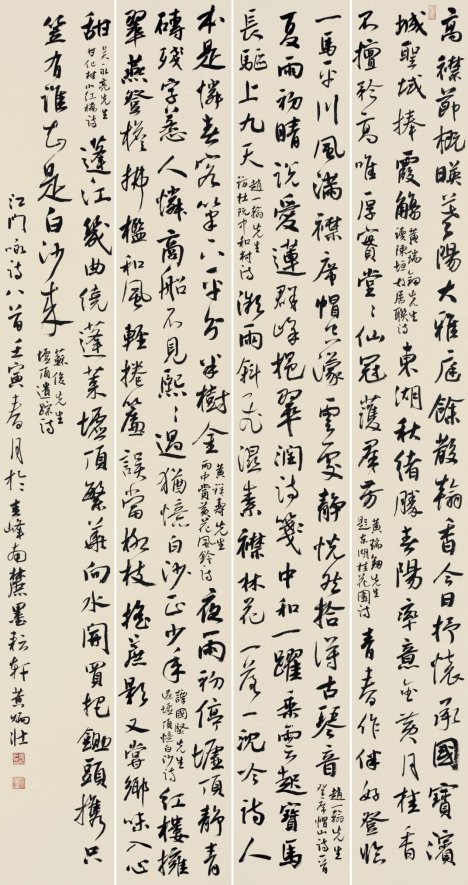 高襟節概暎陽大雅庭餘散翰香今日抒懷承國寶濱
城聖域捧霞觴黃瑞翔先生讀陳垣故居聯詩東湖秋緒勝春陽率意金黃月桂香
不擅矜高唯厚實堂堂仙冠護羣芳黃瑞翔先生題東湖桂花園詩青春作伴好登臨
一馬平川風滿襟席帽只濛雲處靜恍然拾得古琴音趙一翰先生登席帽山詩一首
夏雨初晴說愛蓮群峰挹翠潤詩箋中和一躍乘雲起寶馬
長驅上九天趙一翰先生訪杜阮中和村詩微雨斜飛濕素襟林花一落一沈吟詩人
本是憐春客平分半樹金黃詳壽先生雨中賞黃花風鈴詩夜雨初停墟頂靜青
磚殘字惹人憐高船不見熙熙過猶憶白沙正少年譚國堅先生過墟頂憶白沙詩紅樓擁
翠燕登樓拂檻和風輕捲簾誤當柳枝搖燕影又嘗鄉味入心
甜亮先生甘化村小紅樓詩蓬江幾曲繞蓬萊墟頂繁華向水開買把鋤頭攜只
笠有誰知是白沙來蘇俊先生墟頂遺踪詩
江門詠詩八首壬寅春月於圭峰南麓墨耘軒黃炳壯